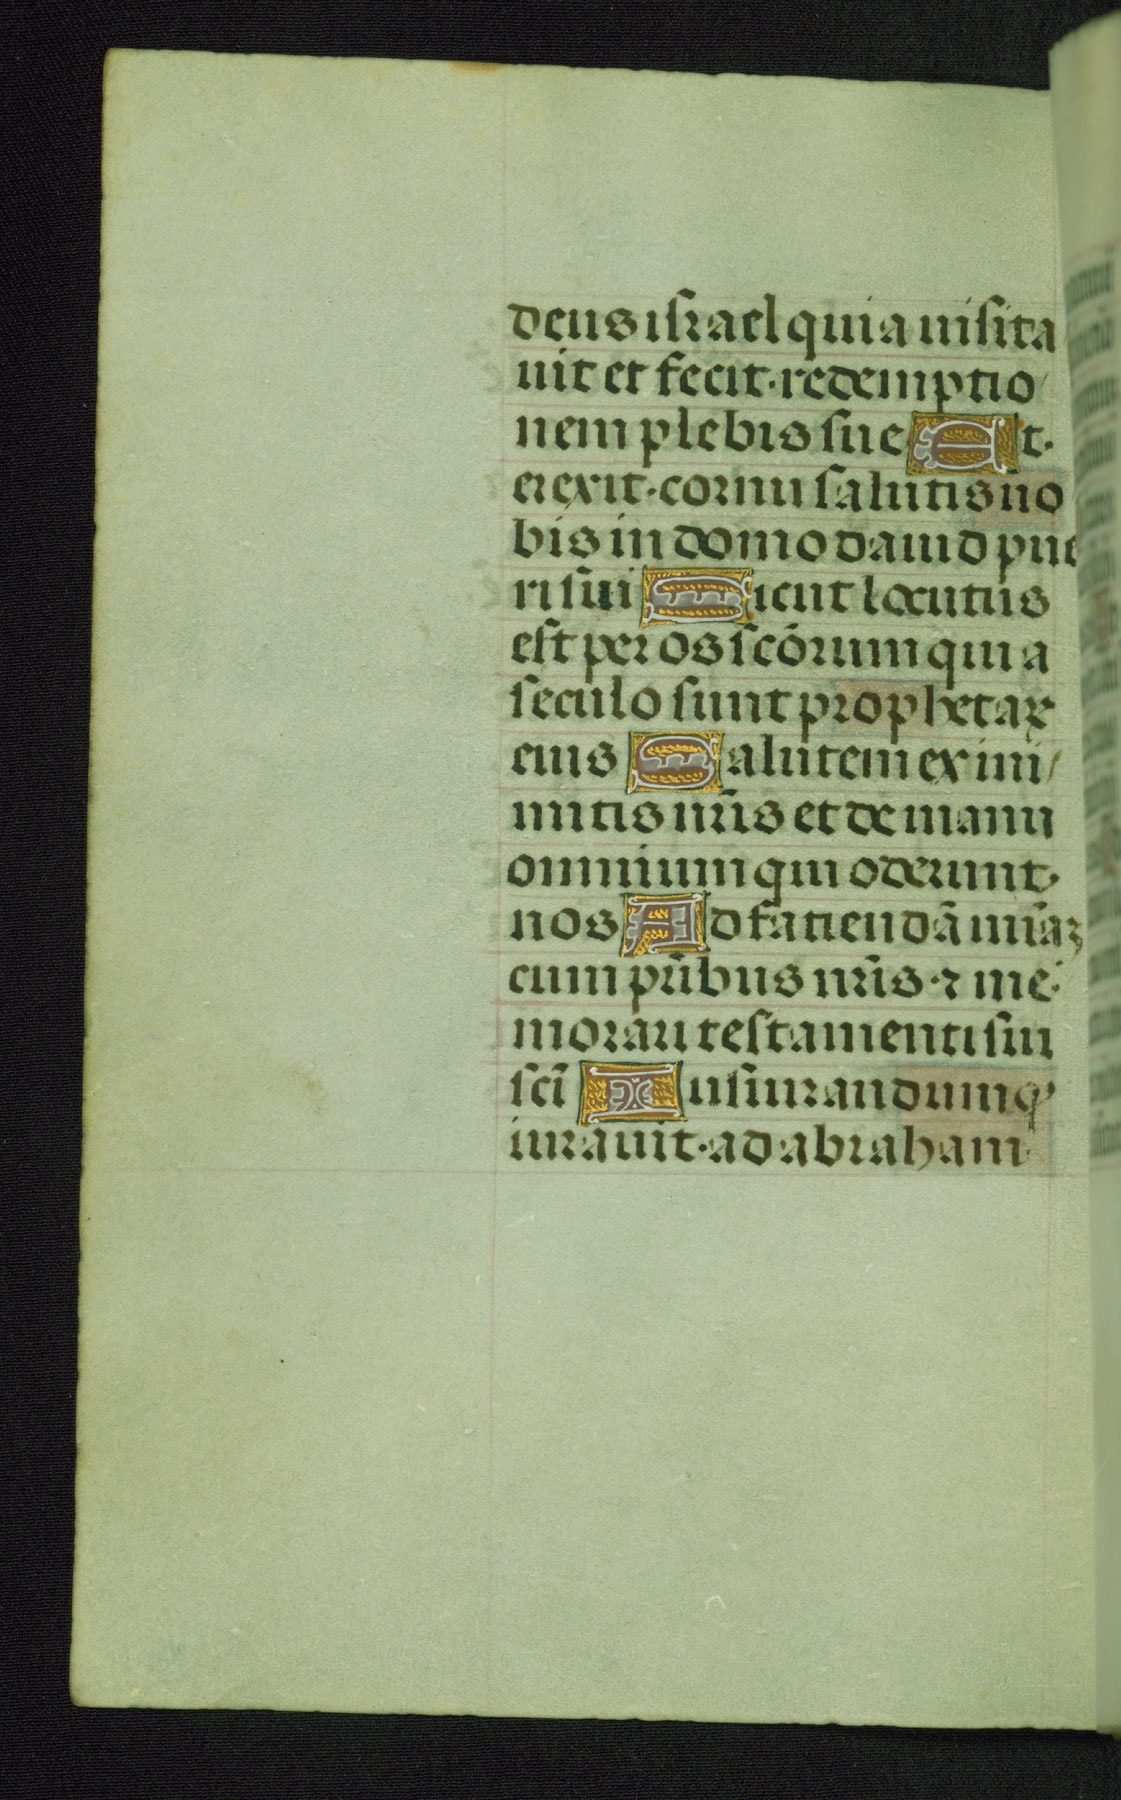 deus israel quia uisita
uit et fecit·redemptio
nem plebis sue Et·
erexit·cornu salutis no
bis in domo dauid pue
ri sui Sicut locutus
est per os scōrum qui a
seculo sunt prophetaꝝ
eius Salutem ex ini
micis nr̄is et de manu
omnium qui oderunt·
nos Ad faciendā mīaꝫ
cum pr̄ibus nr̄is·⁊ me·
morari testamenti sui
sc̄i Iusiurandum ꝙ
iurauit·ad abraham